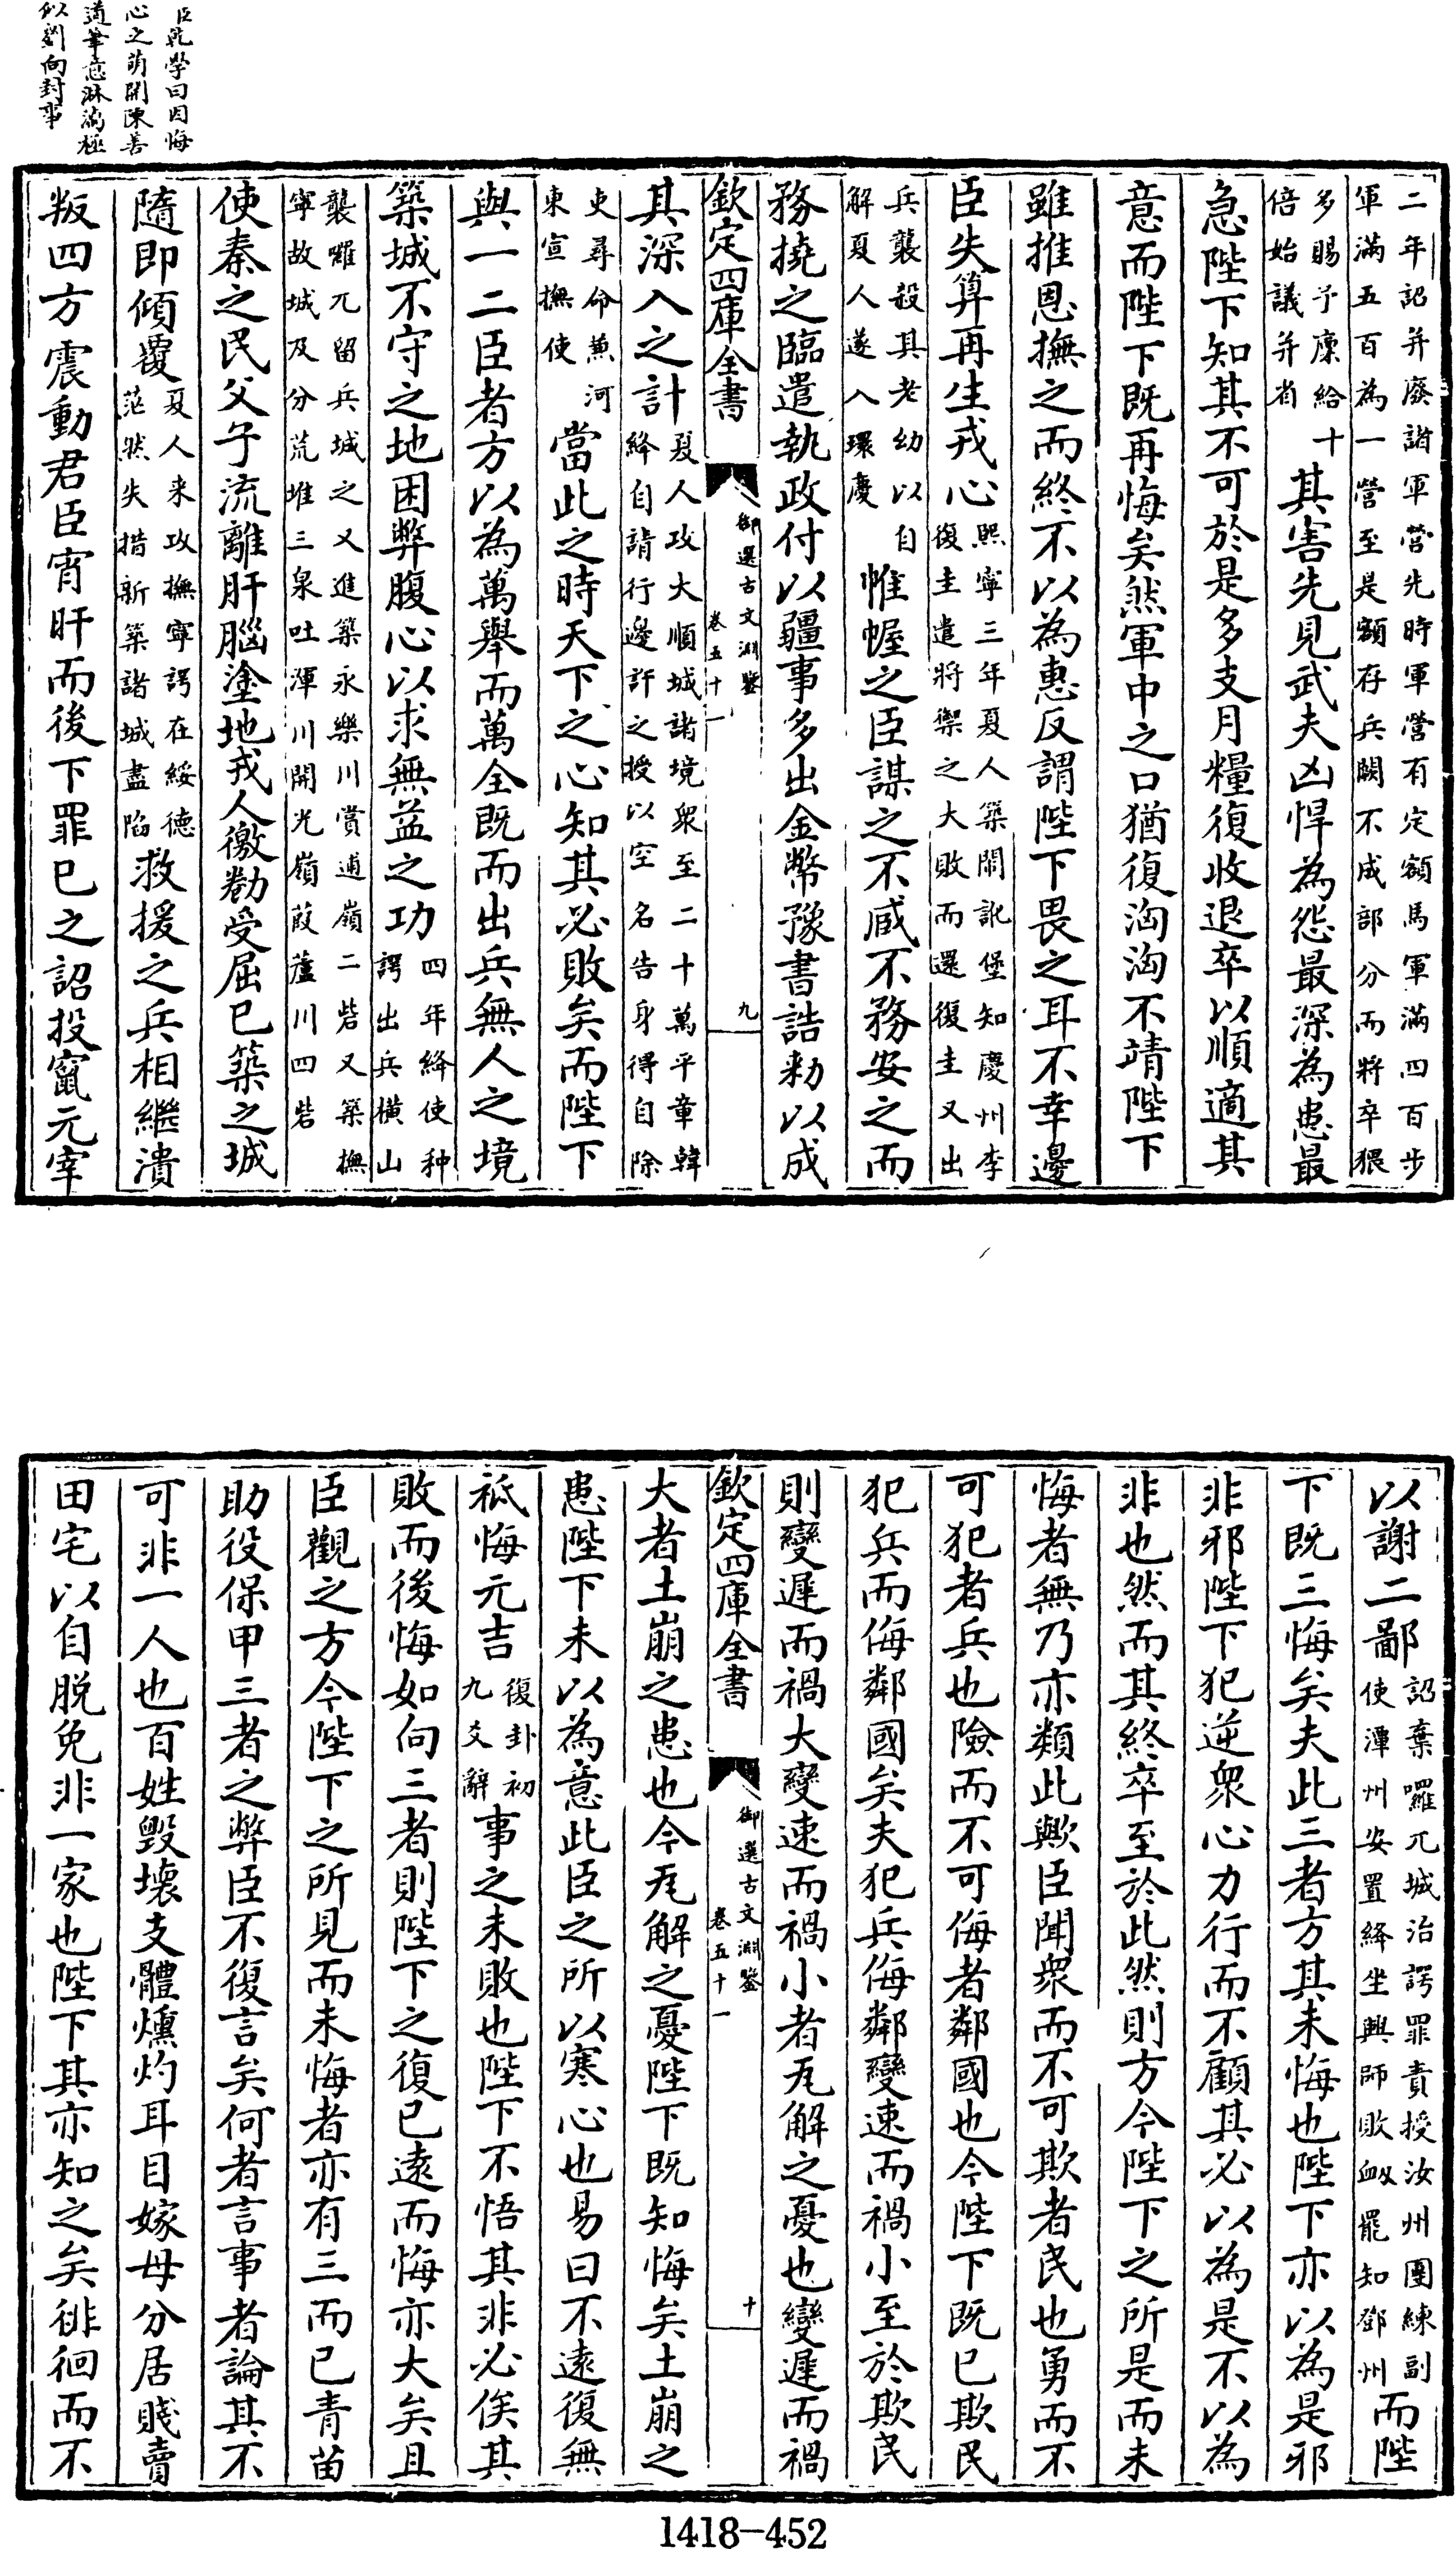 臣乾學曰因悔
心之萌開陳善
道筆意淋漓極
似劉向封事
二年詔并廢諸軍營先時軍營有定額馬軍滿四百步
軍滿五百為一營至是額存兵闕不成部分而將卒猥
多賜予廩給十
倍始議并省
其害先見武夫凶悍為怨最深為患最
急陛下知其不可於是多支月糧復收退卒以順適其
意而陛下既再悔矣然軍中之口猶復洶洶不靖陛下
雖推恩撫之而終不以為惠反謂陛下畏之耳不幸邊
臣失算再生戎心
熙寧三年夏人築鬧訛堡知慶州李
復圭遣將禦之大敗而還復圭又出
兵襲殺其老幼以自
解夏人遂入環慶
帷幄之臣謀之不臧不務安之而
務撓之臨遣執政付以疆事多出金幣豫書誥勅以成
欽定四庫全書
御選古文淵鑒
卷五十一
九
其深入之計
夏人攻大順城諸境衆至二十萬平章韓
絳自請行邊許之授以空名告身得自除
吏尋命兼河
東宣撫使
當此之時天下之心知其必敗矣而陛下
與一二臣者方以為萬舉而萬全既而出兵無人之境
築城不守之地困弊腹心以求無益之功
四年絳使种
諤出兵橫山
襲囉兀留兵城之又進築永樂川賞逋嶺二砦又築撫
寧故城及分荒堆三泉吐渾川開光嶺葭蘆川四砦
使秦之民父子流離肝腦塗地戎人徼勑受屈已築之城
隨即傾覆
夏人来攻撫寧諤在綏德
茫然失措新築諸城盡陷
救援之兵相繼潰
叛四方震動君臣宵旰而後下罪已之詔投竄元宰
以謝二鄙
詔棄囉兀城治諤罪責授汝州團練副
使潭州安置絳坐興師敗衂罷知鄧州
而陛
下既三悔矣夫此三者方其未悔也陛下亦以為是邪
非邪陛下犯逆衆心力行而不顧其必以為是不以為
非也然而其終卒至於此然則方今陛下之所是而未
悔者無乃亦類此歟臣聞衆而不可欺者民也勇而不
可犯者兵也險而不可侮者鄰國也今陛下既已欺民
犯兵而侮鄰國矣夫犯兵侮鄰變速而禍小至於欺民
則變遲而禍大變速而禍小者瓦解之憂也變遲而禍
欽定四庫全書
御選古文淵鑒
卷五十一
十
大者土崩之患也今瓦解之憂陛下既知悔矣土崩之
患陛下未以為意此臣之所以寒心也易曰不遠復無
祇悔元吉
復卦初
九爻辭
事之未敗也陛下不悟其非必俟其
敗而後悔如向三者則陛下之復已遠而悔亦大矣且
臣觀之方今陛下之所見而未悔者亦有三而已青苗
助役保甲三者之弊臣不復言矣何者言事者論其不
可非一人也百姓毀壞支體燻灼耳目嫁母分居賤賣
田宅以自脱免非一家也陛下其亦知之矣徘徊而不
1418-452